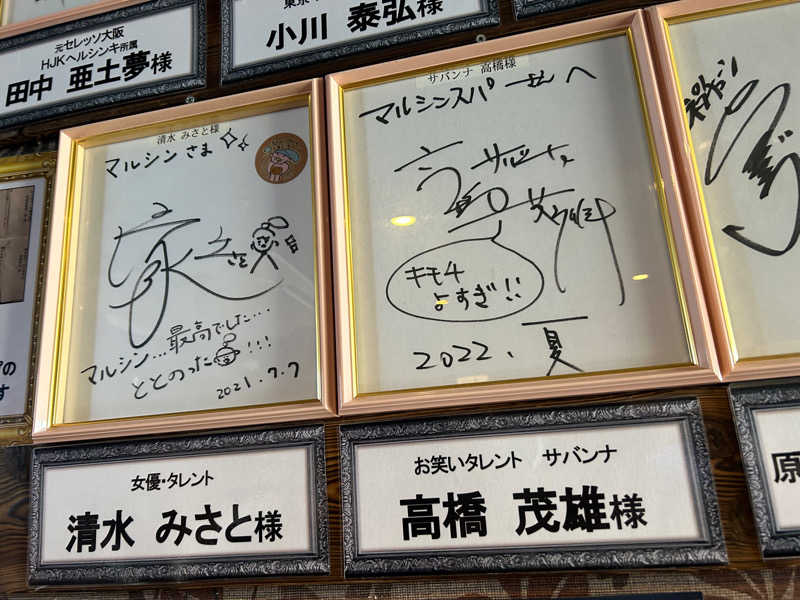 元セレッソ大阪
HJKヘルシンキ所属
田中 亜土夢様
小川 泰弘様
清水 みさと様
マルシン さま
マルシン...最高でした...
ととのった!!!
2021.7.7
サバンナ 高橋様
マルシンスパ さんへ
サバンナ
高橋茂雄
キモチ
よすぎ!!
2022. 夏
女優・タレント
清水 みさと様
お笑いタレント サバンナ
高橋 茂雄様
原